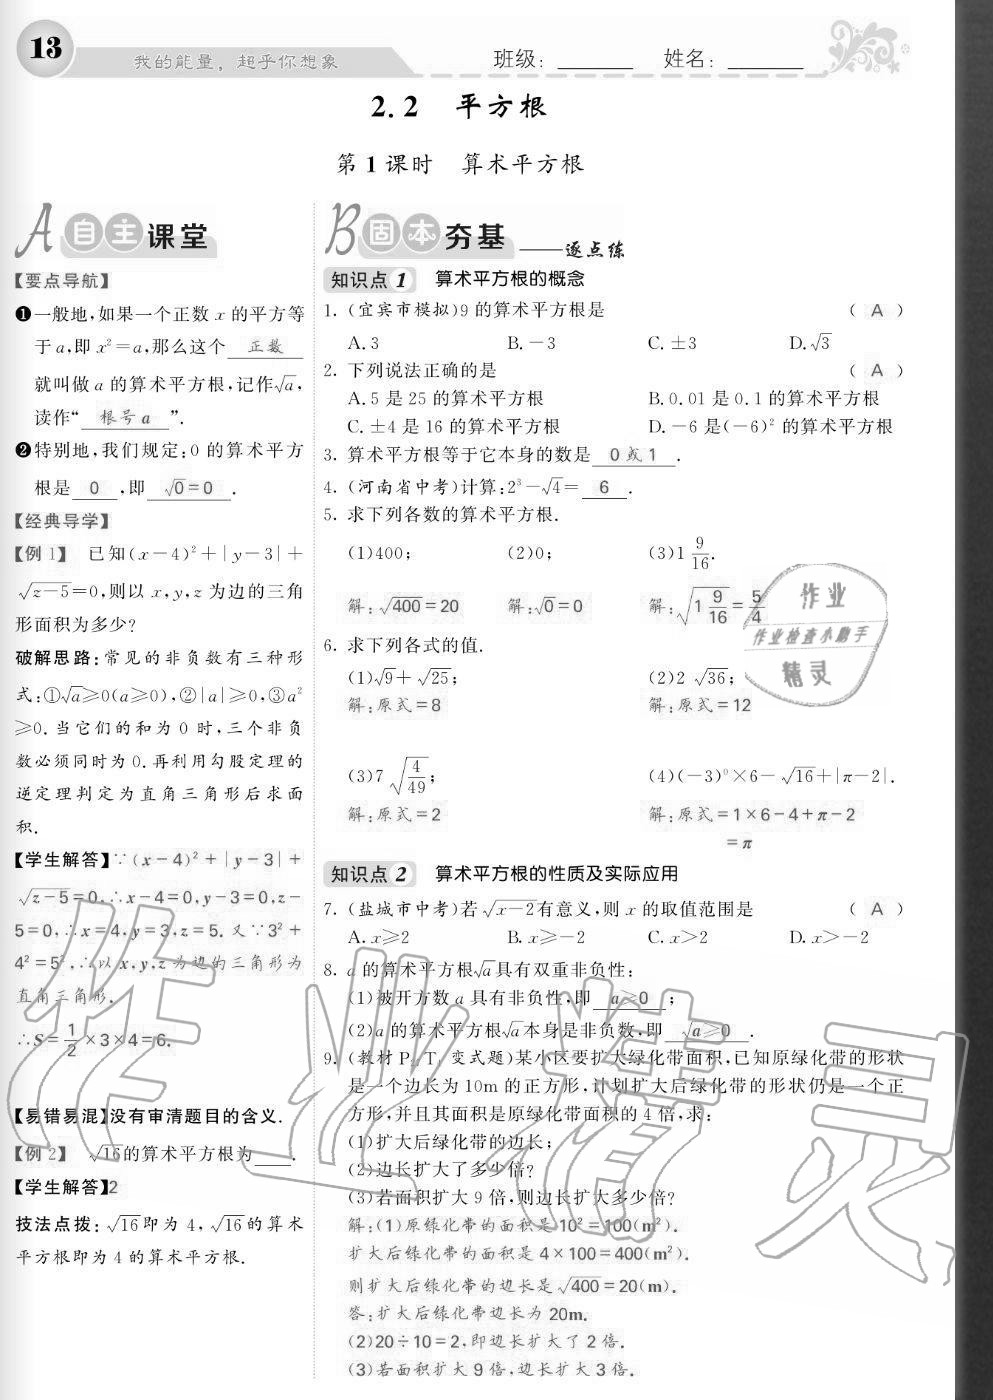 13
我的能量，超乎你想象
班级：______ 姓名：______
2.2 平方根
第1课时 算术平方根
A 自主课堂
【要点导航】
❶一般地,如果一个正数 x 的平方等
于a,即 x²=a,那么这个 正数
就叫做 a 的算术平方根,记作√a,
读作“ 根号 a ”.
❷特别地,我们规定:0 的算术平方
根是 0 ,即 √0=0 .
【经典导学】
【例 1】 已知(x-4)²+|y-3|+
√z-5=0,则以 x,y,z 为边的三角
形面积为多少?
破解思路:常见的非负数有三种形
式:①√a≥0(a≥0),②|a|≥0,③a²
≥0.当它们的和为 0 时,三个非负
数必须同时为 0.再利用勾股定理的
逆定理判定为直角三角形后求面
积.
【学生解答】∵(x-4)²+|y-3|+
√z-5=0,∴x-4=0,y-3=0,z-
5=0,∴x=4,y=3,z=5.又∵3²+
4²=5²,∴以 x,y,z 为边的三角形为
直角三角形.
∴S=1/2×3×4=6.
【易错易混】没有审清题目的含义.
【例 2】 √16的算术平方根为___.
【学生解答】2
技法点拨:√16即为 4,√16的算术
平方根即为 4 的算术平方根.
B 固本夯基——逐点练
知识点1 算术平方根的概念
1. (宜宾市模拟)9 的算术平方根是 ( A )
A.3 B.-3 C.±3 D.√3
2. 下列说法正确的是 ( A )
A.5 是 25 的算术平方根 B.0.01 是 0.1 的算术平方根
C.±4 是 16 的算术平方根 D.-6 是(-6)² 的算术平方根
3. 算术平方根等于它本身的数是 0 或 1 .
4. (河南省中考)计算:2³-√4= 6 .
5. 求下列各数的算术平方根.
(1)400; (2)0; (3)1 9/16.
解:√400=20 解:√0=0 解:√(1 9/16)=5/4
6. 求下列各式的值.
(1)√9+√25; (2)2√36;
解:原式=8 解:原式=12
(3)7√(4/49); (4)(-3)⁰×6-√16+|π-2|.
解:原式=2 解:原式=1×6-4+π-2
=π
知识点2 算术平方根的性质及实际应用
7. (盐城市中考)若√x-2有意义,则 x 的取值范围是 ( A )
A.x≥2 B.x≥-2 C.x>2 D.x>-2
8. a 的算术平方根√a具有双重非负性:
(1)被开方数 a 具有非负性,即 a≥0 ;
(2)a 的算术平方根√a本身是非负数,即 √a≥0 .
9. (教材 P T 变式题)某小区要扩大绿化带面积,已知原绿化带的形状
是一个边长为 10m 的正方形,计划扩大后绿化带的形状仍是一个正
方形,并且其面积是原绿化带面积的 4 倍,求:
(1)扩大后绿化带的边长;
(2)边长扩大了多少倍?
(3)若面积扩大 9 倍,则边长扩大多少倍?
解:(1)原绿化带的面积是 10²=100(m²).
扩大后绿化带的面积是 4×100=400(m²).
则扩大后绿化带的边长是√400=20(m).
答:扩大后绿化带边长为 20m.
(2)20÷10=2,即边长扩大了 2 倍.
(3)若面积扩大 9 倍,边长扩大 3 倍.
作业
作业检查小助手
精灵
作业精灵